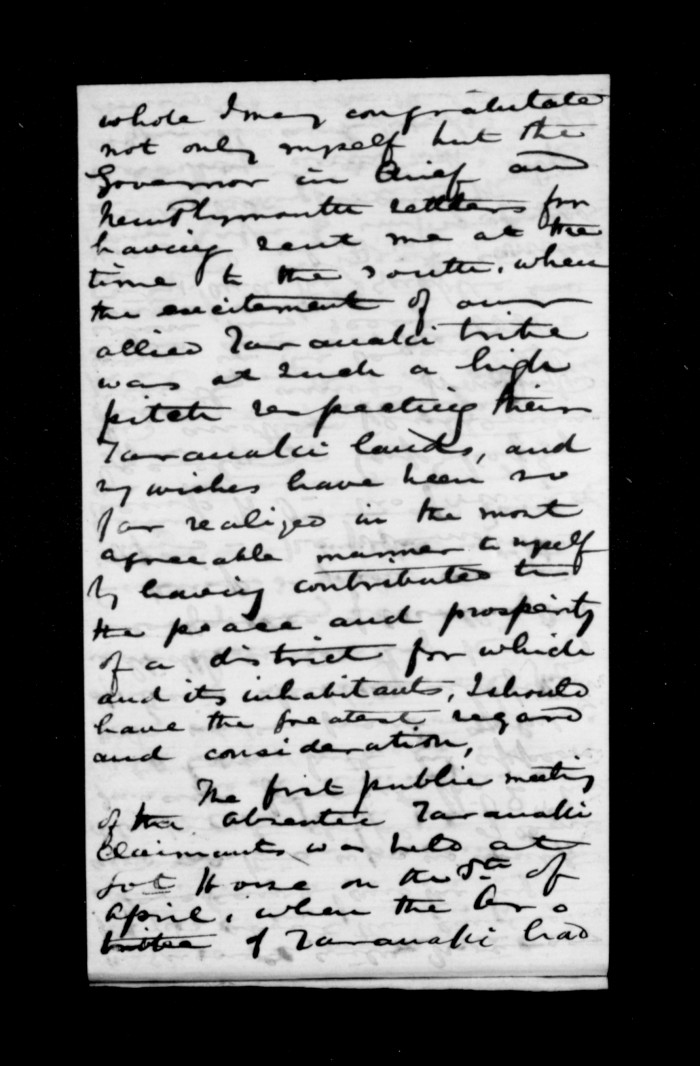 whole I may congratulate
not only myself but the
Governor in Chief and
New Plymouth settlers for
having sent me at the
time to the south, when
the excitement of our
allied Taranaki tribe
was at such a high
pitch respecting their
Taranaki lands, and
my wishes have been so
far realized in the most
agreeable manner to myself
by having contributed to
the peace and prosperity
of a district for which
and its inhabitants, I should
have the greatest regard
and consideration,
The first public meeting
of the absentee Taranaki
Claimants was held at
House on the 8th of
April, when the
of Taranaki had